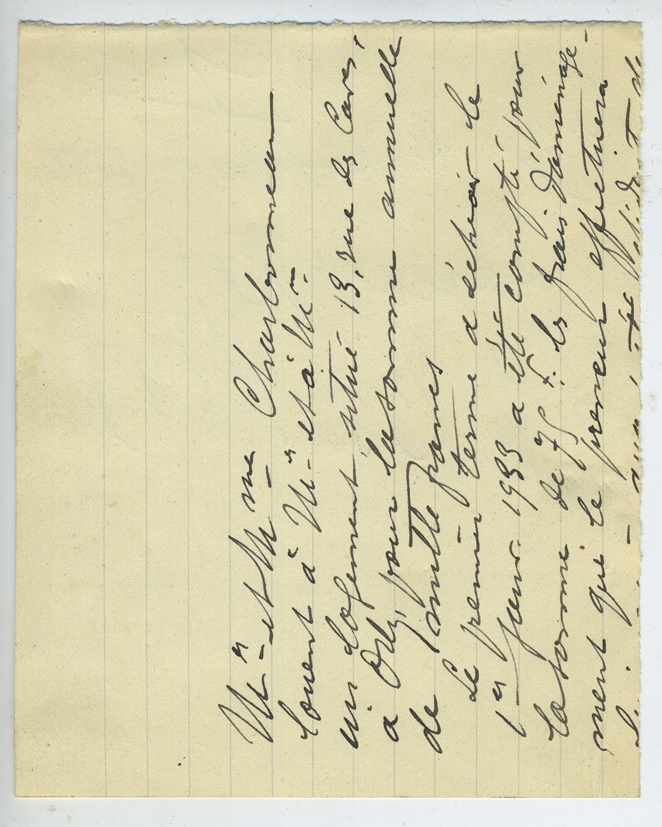 Mr et Mme Charbonneau
louent à Mr et à Mme
un logement situé 13, rue des Caves,
à Orly, pour la somme annuelle
de mille francs
Le premier terme à échoir le
1er janv. 1933 a été compté pour
la somme de 75 f. les frais d'aménage-
ment que le preneur effectuera